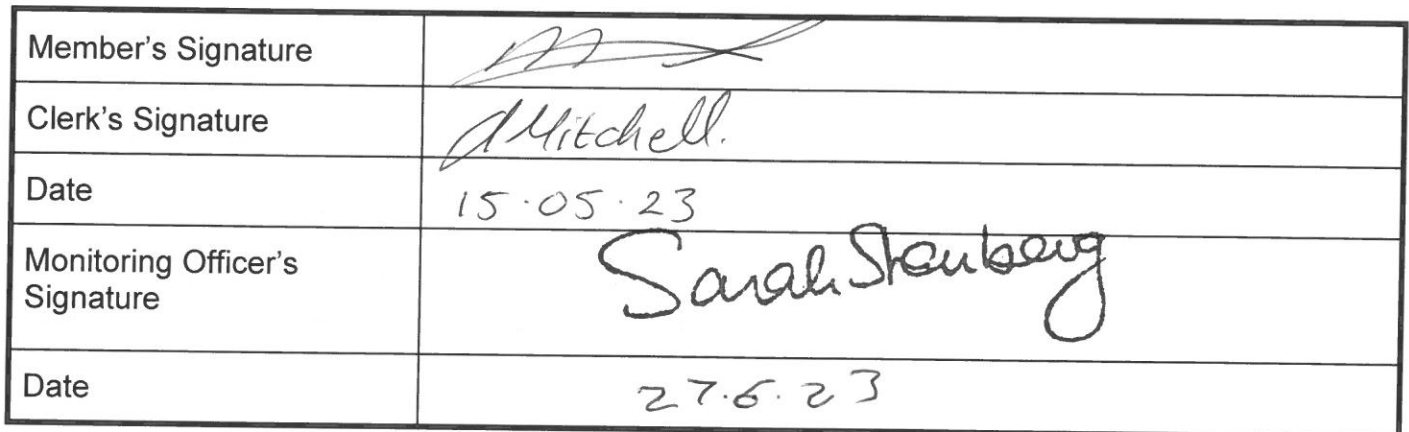 Member's Signature
Clerk's Signature
d Mitchell.
Date
15.05.23
Monitoring Officer's
Signature
Sarah Stenberg
Date
27.6.23